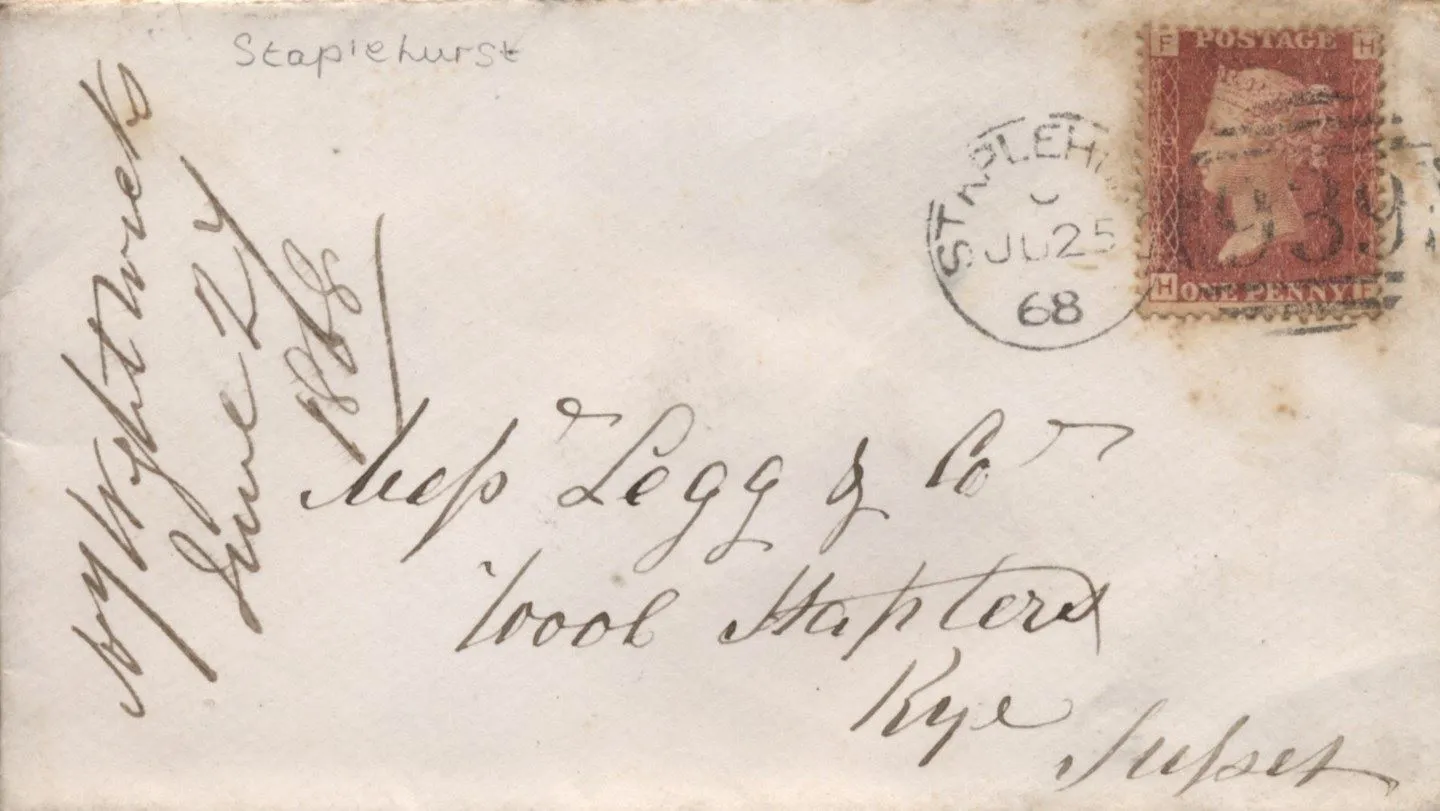 Staplehurst
F POSTAGE H
STAPLEH
JU 25
68
939
H ONE PENNY F
June 24
1868
Mess^rs Legg & Co
Wool Staplers
Rye
Sussex